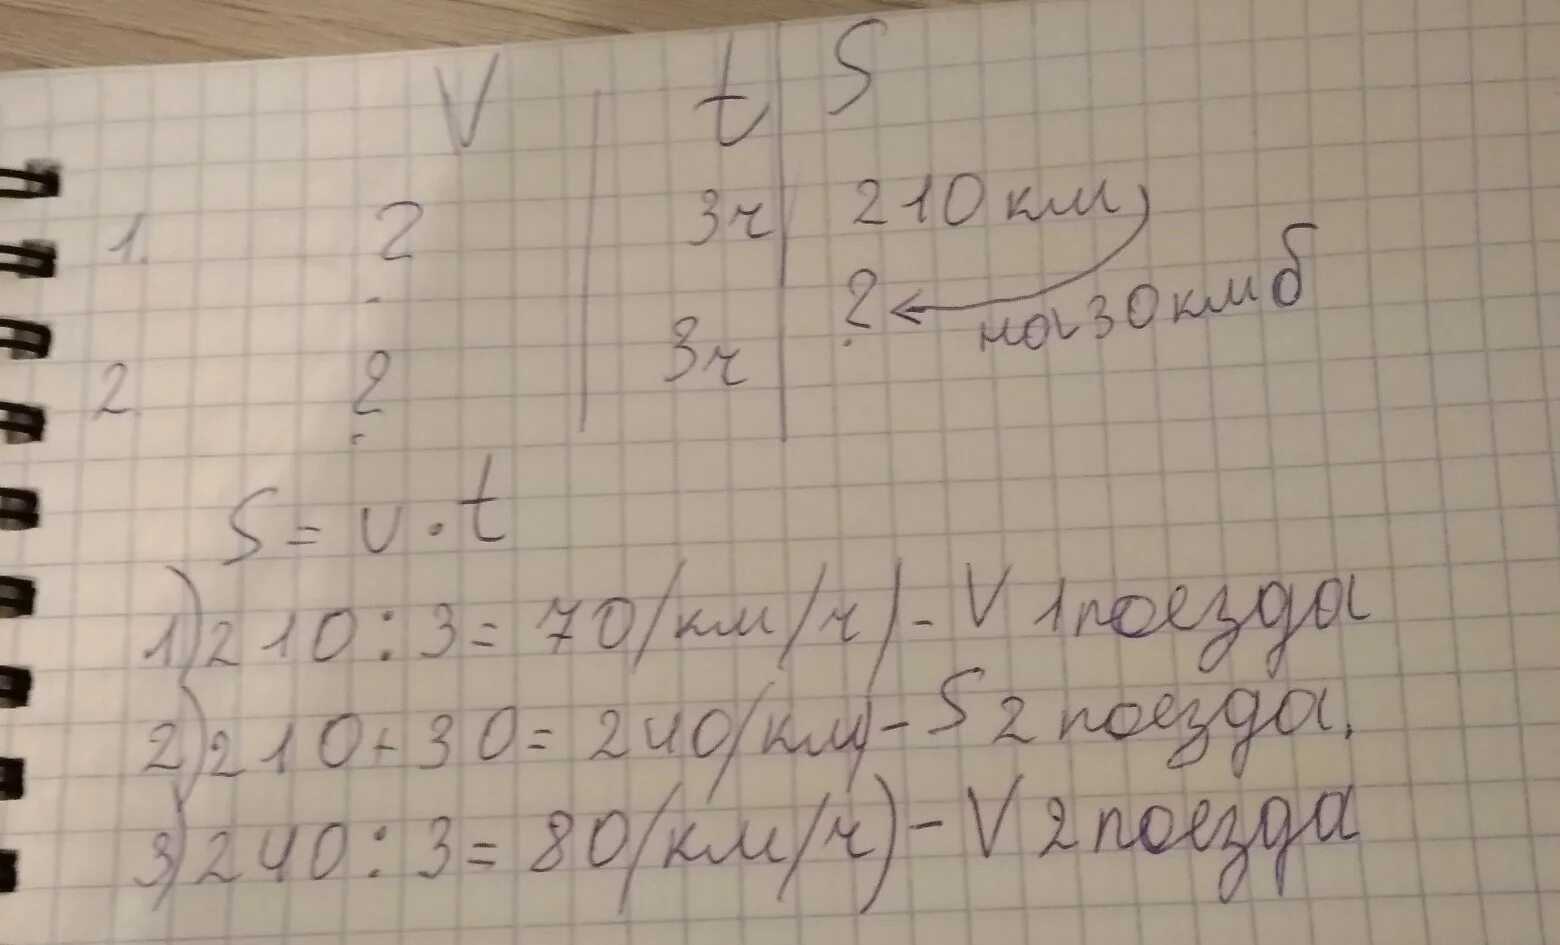 V t S
1. ? 3ч 210 км
? на 30 км б
2. ? 3ч
S = v · t
1) 210 : 3 = 70 (км/ч) - V 1 поезда
2) 210 + 30 = 240 (км) - S 2 поезда.
3) 240 : 3 = 80 (км/ч) - V 2 поезда